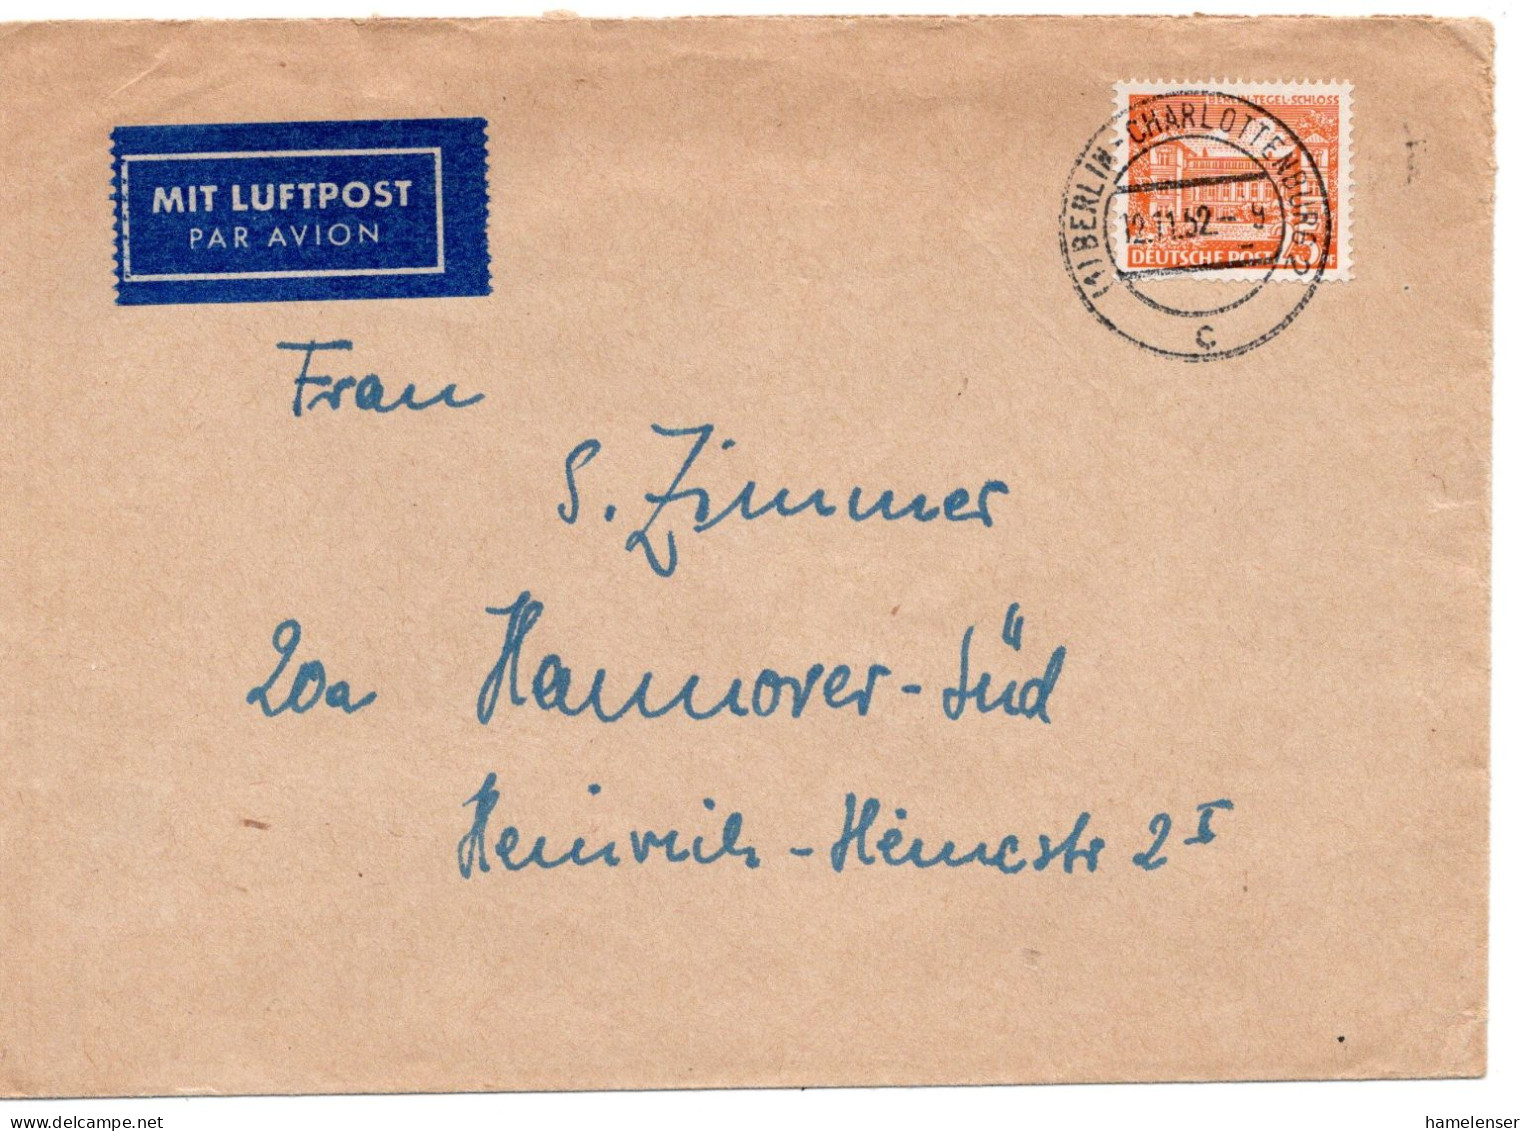 MIT LUFTPOST
PAR AVION
BERLIN-TEGEL-SCHLOSS
DEUTSCHE POST
(1) BERLIN-CHARLOTTENBURG 2
12.11.52.-9
c
Frau
S. Zimmer
20a Hannover-Süd
Heinrich-Heinestr 2 I
hamelenser